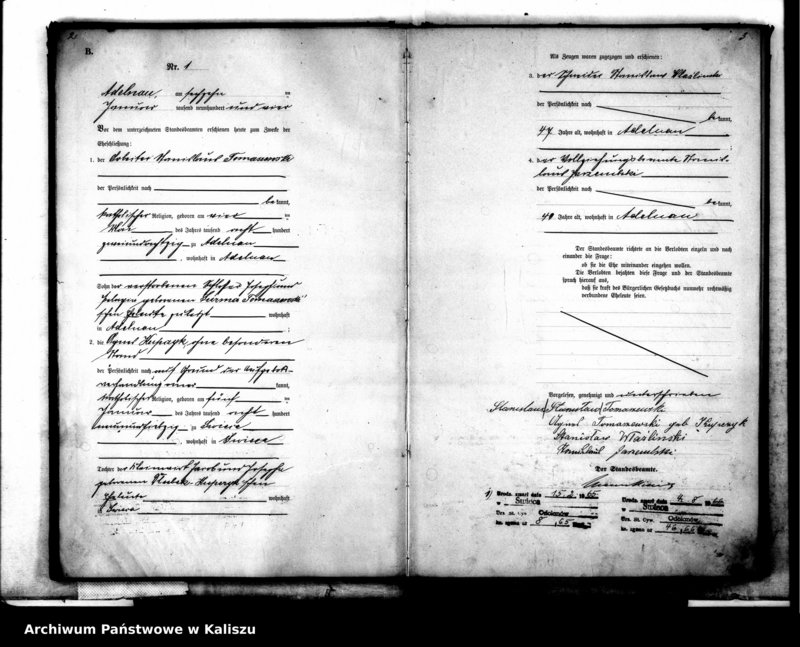 2
B.
Nr. 1
Adelnau am sechzehn ten
Januar tausend neunhundert und vier
Vor dem unterzeichneten Standesbeamten erschienen heute zum Zwecke der
Eheschließung:
1. der Arbeiter Stanislaus Tomaszewski
der Persönlichkeit nach
be kannt,
katholischer Religion, geboren am vier ten
Mai des Jahres tausend acht hundert
zweiundachtzig zu Adelnau
, wohnhaft in Adelnau
Sohn der verstorbenen
geborenen Tomaszewski
schen Eheleute zuletzt wohnhaft
in Adelnau
2. die Agnes Kupczyk, ohne besonderen
Stand
der Persönlichkeit nach auf Grund der Aufgebots-
verhandlung aner kannt,
katholischer Religion, geboren am fünf ten
Januar des Jahres tausend acht hundert
zu Swieca
, wohnhaft in Swieca
Tochter der Jacob und Josepha
geborenen Kupczyk schen
Eheleute wohnhaft
in Swieca
3
Als Zeugen waren zugezogen und erschienen:
3. der Schneider Stanislaus Waslinski
der Persönlichkeit nach
be kannt,
47 Jahre alt, wohnhaft in Adelnau
4. der Vollziehungsbeamte Stanis-
laus Jarzembski
der Persönlichkeit nach
be kannt,
40 Jahre alt, wohnhaft in Adelnau
Der Standesbeamte richtete an die Verlobten einzeln und nach
einander die Frage:
ob sie die Ehe miteinander eingehen wollen.
Die Verlobten bejahten diese Frage und der Standesbeamte
sprach hierauf aus,
daß sie kraft des Bürgerlichen Gesetzbuchs nunmehr rechtmäßig
verbundene Eheleute seien.
Vorgelesen, genehmigt und unterschrieben
Stanislaus Stanisław Tomaszewski
Agnes Tomaszewski geb. Kupczyk
Stanisław Waśliński
Stanislaus Jarzembski
Der Standesbeamte.
1) Urodz. zmarł dnia
w Świeca
Urz. St. Cyw. Odolanów
Urodz. zmarł dnia
w Świeca
Urz. St. Cyw. Odolanów
Archiwum Państwowe w Kaliszu